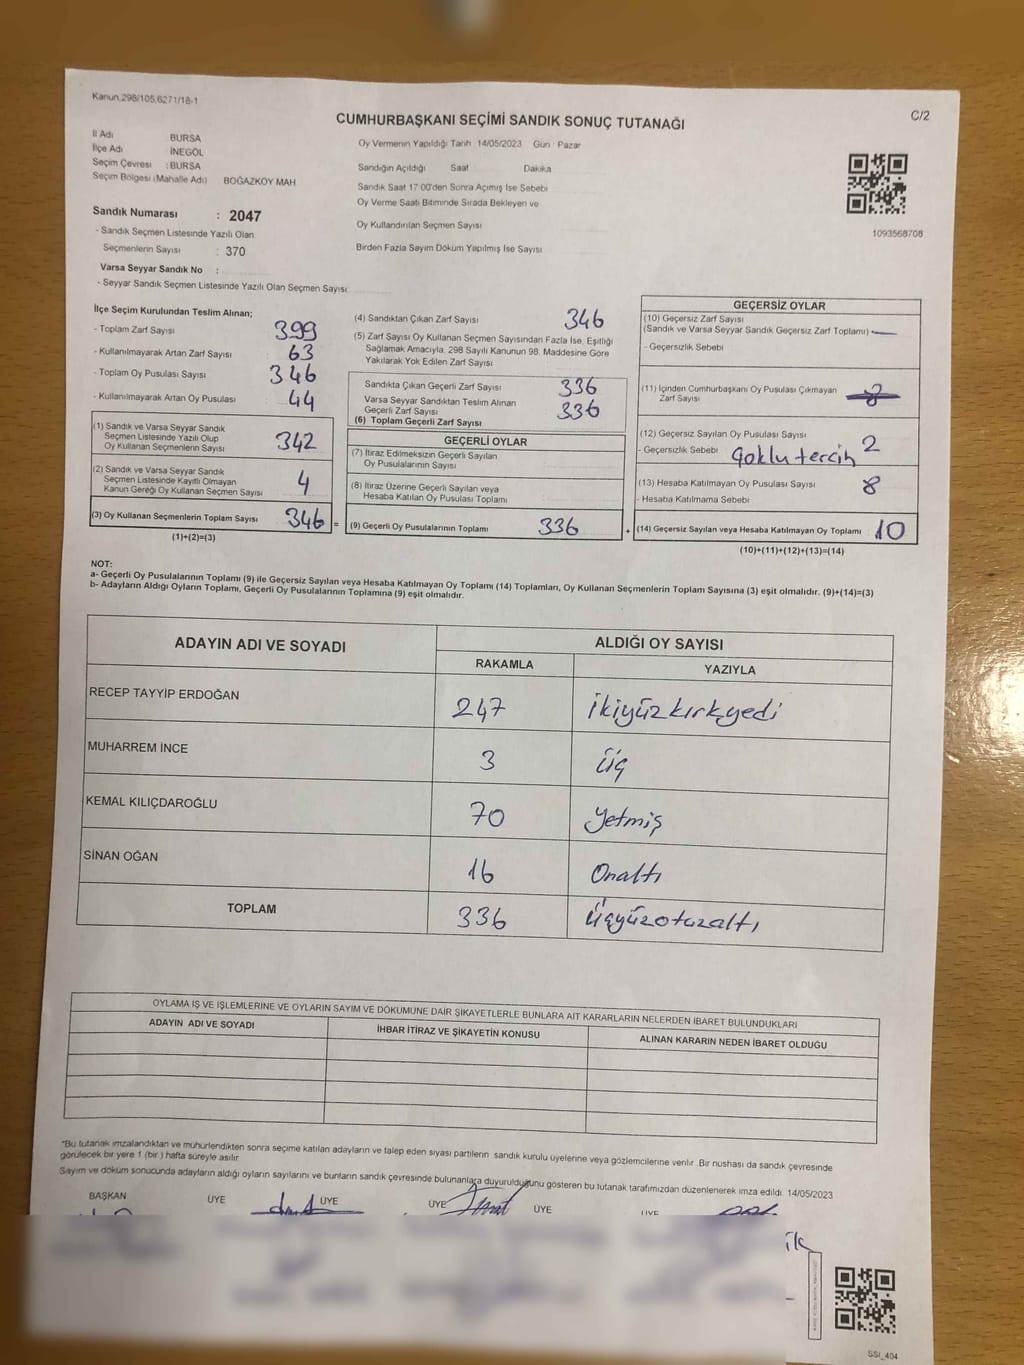 Kanun,298/105,6271/18-1
C/2
CUMHURBAŞKANI SEÇİMİ SANDIK SONUÇ TUTANAĞI
İl Adı BURSA
İlçe Adı İNEGÖL
Seçim Çevresi : BURSA
Seçim Bölgesi (Mahalle Adı) BOĞAZKÖY MAH
Oy Vermenin Yapıldığı Tarih 14/05/2023 Gün : Pazar
Sandığın Açıldığı Saat Dakika
Sandık Saat 17:00'den Sonra Açımış İse Sebebi
Oy Verme Saati Bitiminde Sırada Bekleyen ve
Oy Kullandırılan Seçmen Sayısı
Birden Fazla Sayım Döküm Yapılmış İse Sayısı
1093568708
Sandık Numarası : 2047
- Sandık Seçmen Listesinde Yazılı Olan
Seçmenlerin Sayısı : 370
Varsa Seyyar Sandık No :
- Seyyar Sandık Seçmen Listesinde Yazılı Olan Seçmen Sayısı:
İlçe Seçim Kurulundan Teslim Alınan;
- Toplam Zarf Sayısı 399
- Kullanılmayarak Artan Zarf Sayısı 63
- Toplam Oy Pusulası Sayısı 346
- Kullanılmayarak Artan Oy Pusulası 44
(1) Sandık ve Varsa Seyyar Sandık
Seçmen Listesinde Yazılı Olup
Oy Kullanan Seçmenlerin Sayısı 342
(2) Sandık ve Varsa Seyyar Sandık
Seçmen Listesinde Kayıtlı Olmayan
Kanun Gereği Oy Kullanan Seçmen Sayısı 4
(3) Oy Kullanan Seçmenlerin Toplam Sayısı 346 =
(1)+(2)=(3)
(4) Sandıktan Çıkan Zarf Sayısı 346
(5) Zarf Sayısı Oy Kullanan Seçmen Sayısından Fazla İse, Eşitliği
Sağlamak Amacıyla, 298 Sayılı Kanunun 98. Maddesine Göre
Yakılarak Yok Edilen Zarf Sayısı
Sandıkta Çıkan Geçerli Zarf Sayısı 336
Varsa Seyyar Sandıktan Teslim Alınan
Geçerli Zarf Sayısı 336
(6) Toplam Geçerli Zarf Sayısı
GEÇERLİ OYLAR
(7) İtiraz Edilmeksizin Geçerli Sayılan
Oy Pusulalarının Sayısı
(8) İtiraz Üzerine Geçerli Sayılan veya
Hesaba Katılan Oy Pusulası Toplamı
(9) Geçerli Oy Pusulalarının Toplamı 336 +
GEÇERSİZ OYLAR
(10) Geçersiz Zarf Sayısı
(Sandık ve Varsa Seyyar Sandık Geçersiz Zarf Toplamı)
- Geçersizlik Sebebi
(11) İçinden Cumhurbaşkanı Oy Pusulası Çıkmayan
Zarf Sayısı
(12) Geçersiz Sayılan Oy Pusulası Sayısı 2
- Geçersizlik Sebebi Çoklu tercih
(13) Hesaba Katılmayan Oy Pusulası Sayısı 8
- Hesaba Katılmama Sebebi
(14) Geçersiz Sayılan veya Hesaba Katılmayan Oy Toplamı 10
(10)+(11)+(12)+(13)=(14)
NOT:
a- Geçerli Oy Pusulalarının Toplamı (9) ile Geçersiz Sayılan veya Hesaba Katılmayan Oy Toplamı (14) Toplamları, Oy Kullanan Seçmenlerin Toplam Sayısına (3) eşit olmalıdır. (9)+(14)=(3)
b- Adayların Aldığı Oyların Toplamı, Geçerli Oy Pusulalarının Toplamına (9) eşit olmalıdır.
ADAYIN ADI VE SOYADI ALDIĞI OY SAYISI
RAKAMLA YAZIYLA
RECEP TAYYİP ERDOĞAN 247 İkiyüzkırkyedi
MUHARREM İNCE 3 üç
KEMAL KILIÇDAROĞLU 70 Yetmiş
SİNAN OĞAN 16 Onaltı
TOPLAM 336 Üçyüzotuzaltı
OYLAMA İŞ VE İŞLEMLERİNE VE OYLARIN SAYIM VE DÖKÜMÜNE DAİR ŞİKAYETLERLE BUNLARA AİT KARARLARIN NELERDEN İBARET BULUNDUKLARI
ADAYIN ADI VE SOYADI İHBAR İTİRAZ VE ŞİKAYETİN KONUSU ALINAN KARARIN NEDEN İBARET OLDUĞU
*Bu tutanak imzalandıktan ve mühürlendikten sonra seçime katılan adayların ve talep eden siyasi partilerin sandık kurulu üyelerine veya gözlemcilerine verilir. Bir nüshası da sandık çevresinde
görülecek bir yere 1 (bir ) hafta süreyle asılır.
Sayım ve döküm sonucunda adayların aldığı oyların sayılarını ve bunların sandık çevresinde bulunanlara duyurulduğunu gösteren bu tutanak tarafımızdan düzenlenerek imza edildi. 14/05/2023
BAŞKAN ÜYE ÜYE ÜYE ÜYE ÜYE
SSI_404